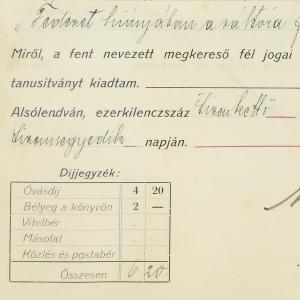 „Fedezet hiányában a váltóra
Miről, a fent nevezett megkereső fél jogai
tanusitványt kiadtam.
Alsólendván, ezerkilenczszáz tizenkettő
tizennegyedik napján.
Díjjegyzék:
Óvásdíj 4 20
Bélyeg a könyvön 2 —
Vitelbér
Másolat
Közlés és postabér
Összesen 6 20